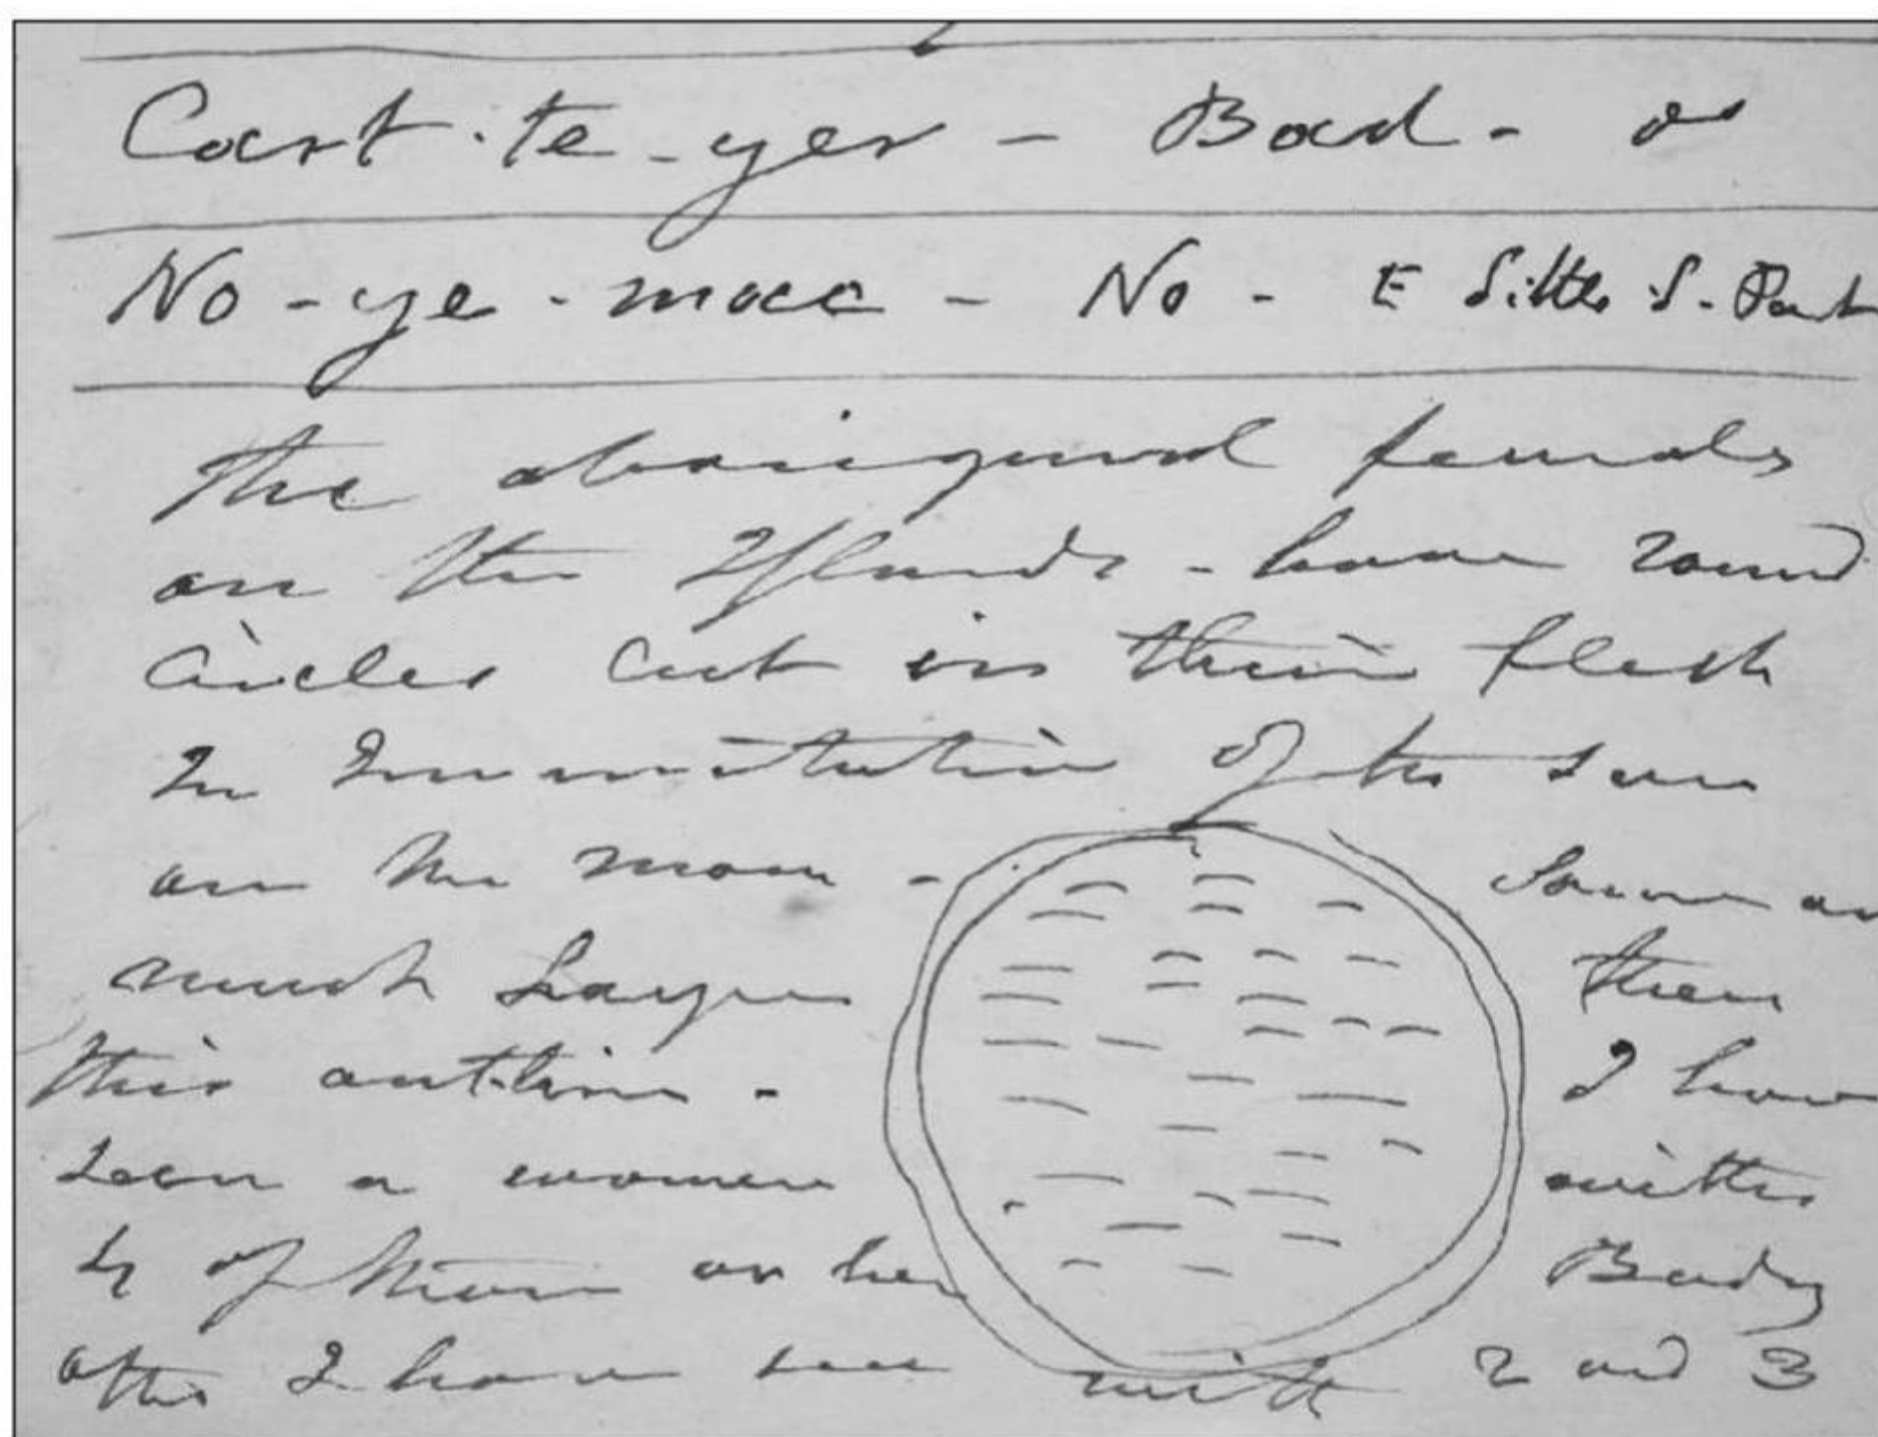 Cart-te-yer - Bad - do
No-ye-mac - No - E Sitter S. Port
The aboriginal females
on the Islands - have round
Circles Cut in their flesh
In Immitation of the sun
or the moon - Some are
much Larger then
this outline - I have
seen a women with
4 of them on her Body
other I have see with 2 and 3